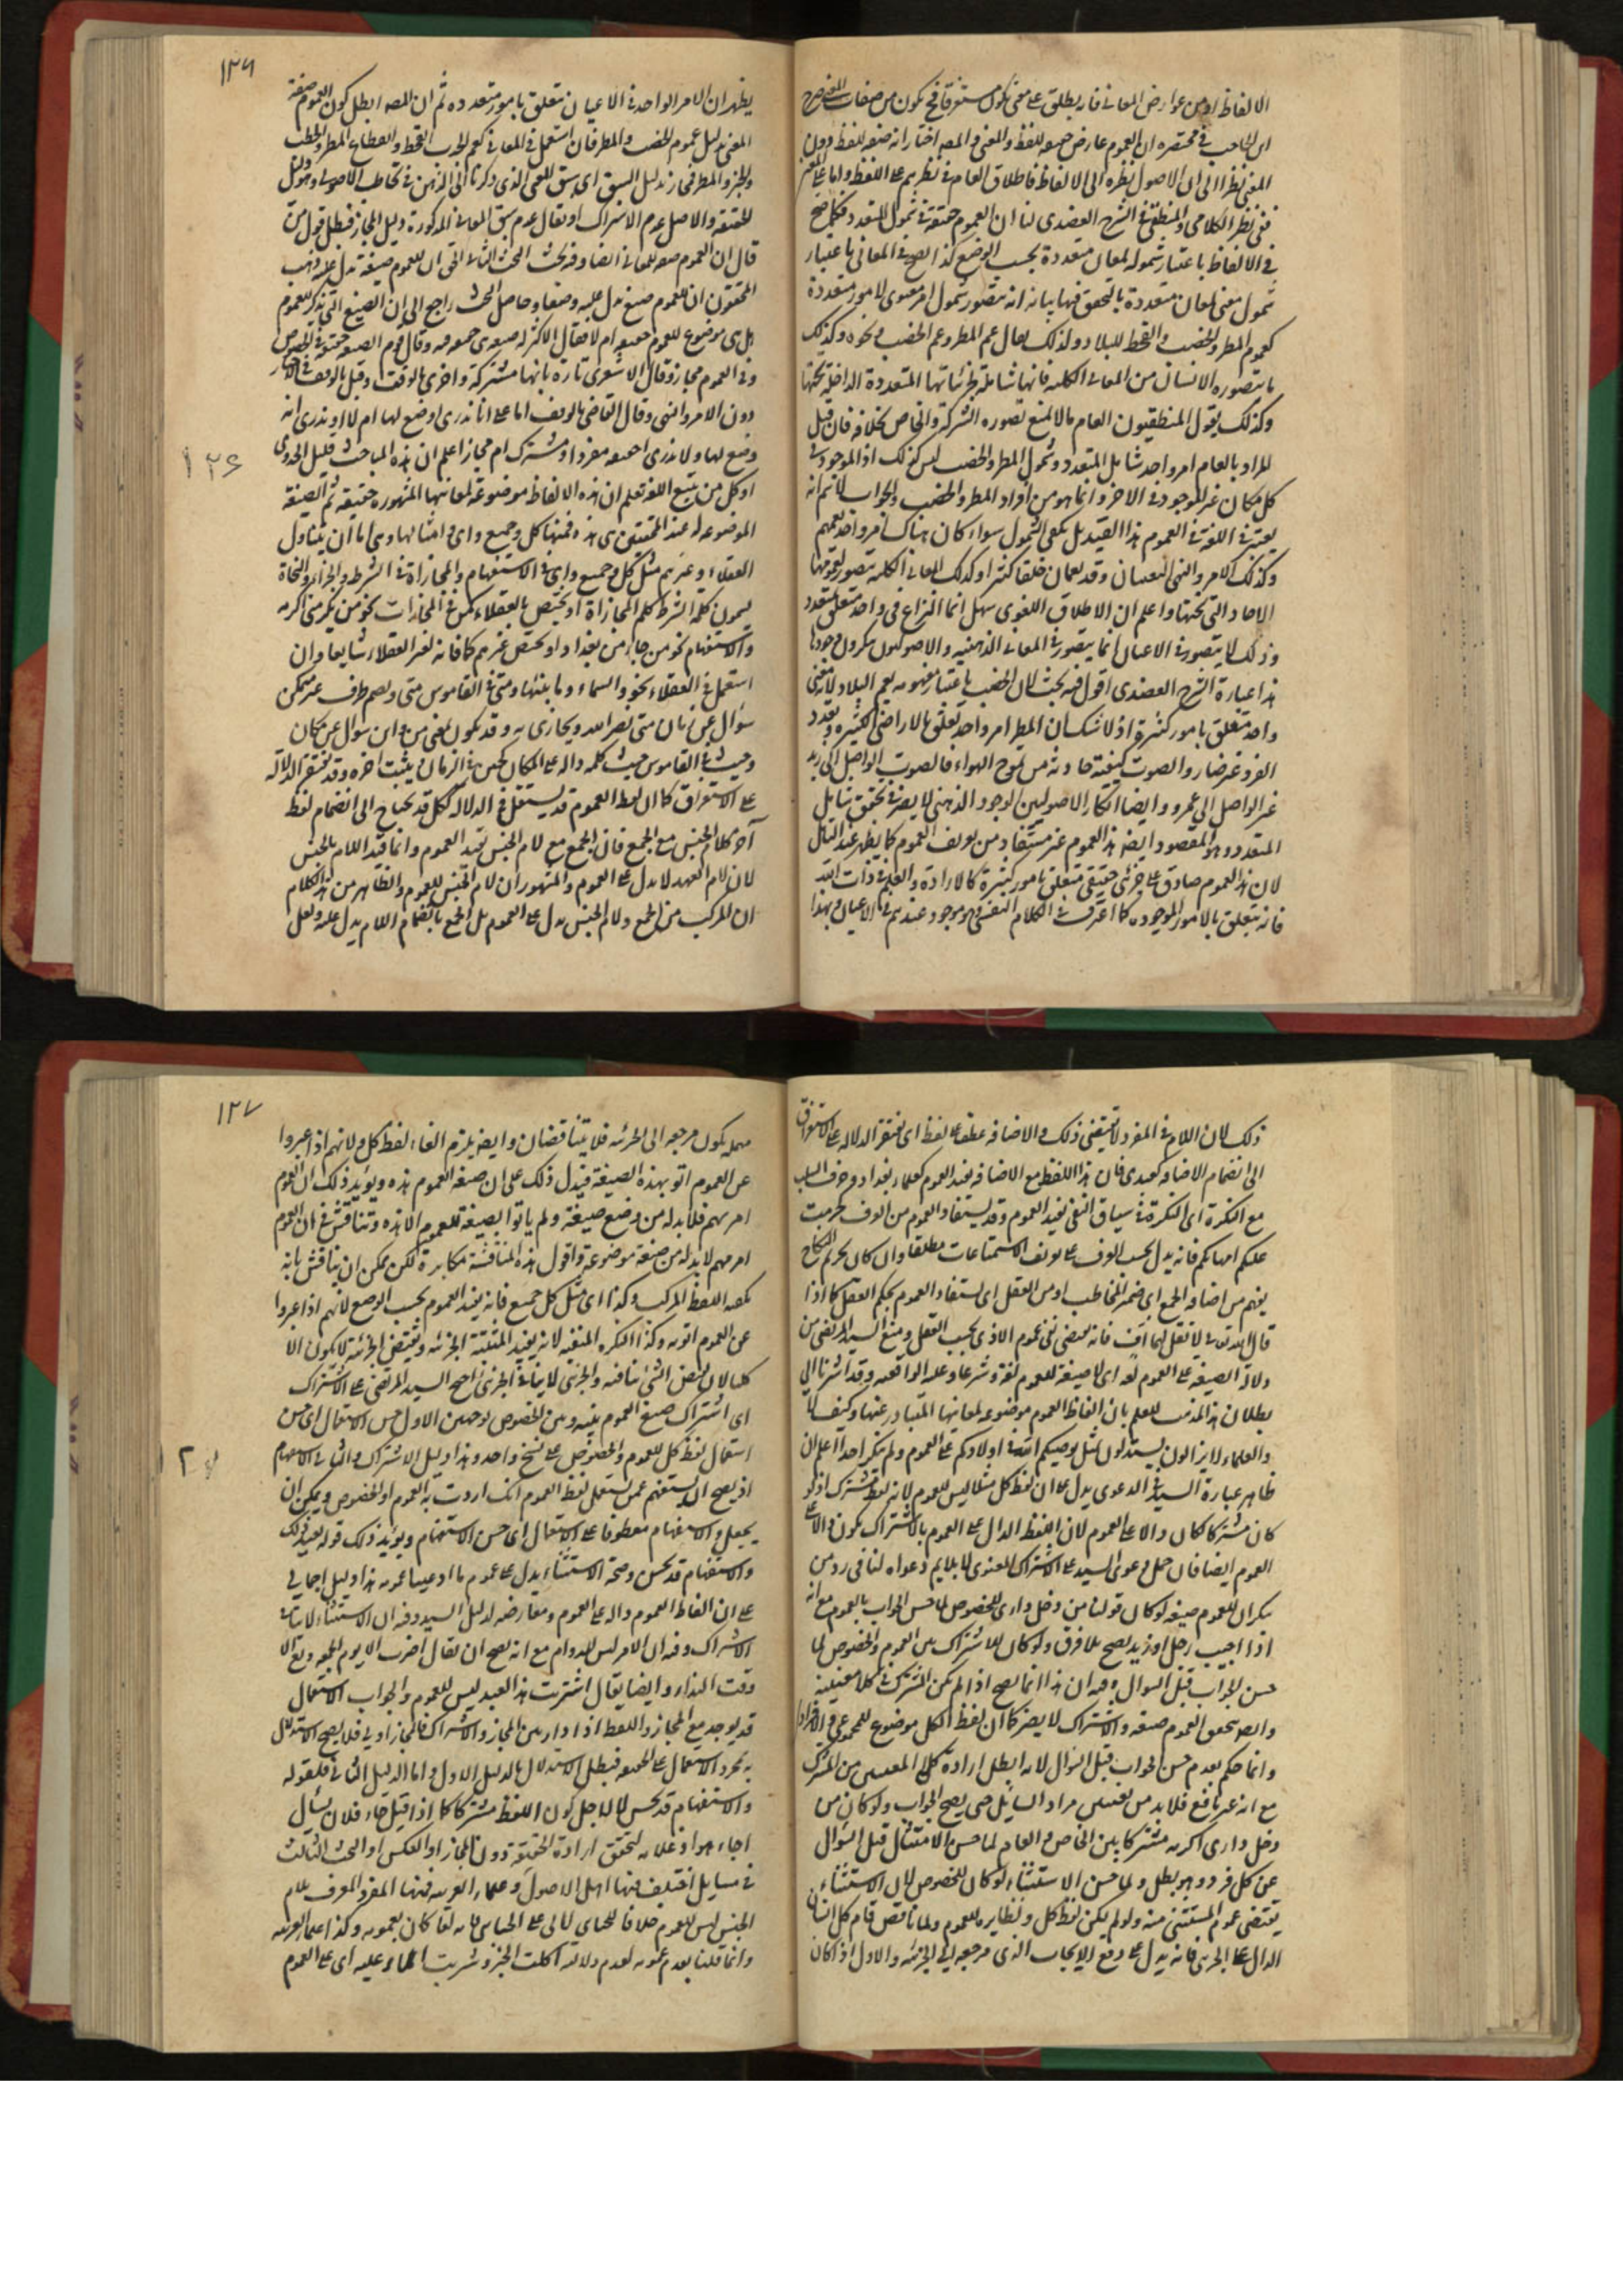 الالفاظ او من عوارض المعاني فانه يطلق على معنى كون مستغرقا فح يكون من صفات المعنى صرح
ابن الحاجب في مختصره ان العموم عارض حقيقة للفظ والمعنى والمصـ اختار انه صفة للفظ دون
المعنى نظرا الى ان الاصولى نظره الى الالفاظ فاطلاق العام في نظرهم على اللفظ واما على المعنى
ففى نظر الكلامي والمنطقي في الشرح العضدي لنا ان العموم حقيقة في شمول المتعدد فكما صح
في الالفاظ باعتبار شموله لمعان متعددة بحسب الوضع كذا صح في المعاني باعتبار
شمول معنى لمعان متعددة بالتحقق فيها بيانه انه متصور شمول امر معنوي لامور متعددة
كعموم المطر والخصب والقحط للبلاد ولذلك يقال عم المطر وعم الخصب ونحوه وكذلك
ما يتصوره الانسان من المعاني الكلية فانها شاملة لجزئياتها المتعددة الداخلة تحتها
وكذلك يقول المنطقيون العام ما لا يمنع تصوره الشركة والخاص بخلافه فان قيل
المراد بالعام امر واحد شامل للمتعدد وشمول المطر والخصب ليس كذلك اذ الموجود في
كل مكان غير الموجود في الاخر وانما هو من افراد المطر والخصب والجواب لا نم انه
يعتبر في اللغة في العموم هذا القيد بل يكفى الشمول سواء كان هناك امر واحد يعمهم
وكذلك الامر والنهى النفسيان وقد يعمان خلقا كثيرا وكذلك المعاني الكلية تتصور لعمومها
الاحاد التي تحتها واعلم ان الاطلاق اللغوى سهل انما النزاع في واحد متعلق بمتعدد
وذلك لا يتصور في الاعيان انما يتصور في المعاني الذهنيه والاصوليون ينكرون وجودها
هذا عبارة الشرح العضدي اقول فيه بحث لان الخصب باعتبار مفهومه يعم البلاد لانه معنى
واحد متعلق بامور كثيرة اذ لا شك ان المطر امر واحد تعلق بالاراضي الكثيره وتعدد
الفرد غير ضار والصوت كيفية حادثة من تموج الهواء فالصوت الواصل الى زيد
غير الواصل الى عمرو وايضا انكار الاصوليين الوجود الذهني لا يضر في تحقق شامل
المتعدد وهو المقصود ايضا هذا العموم غير مستفاد من تعريف العموم كما يظهر عند التأمل
لان هذا العموم صادق على جزئى حقيقى متعلق بامور كثيرة كالارادة والعلم في ذات الله
فانه يتعلق بالامور الموجوده كما اعترف في الكلام النفسى فهو موجود عندهم في الاعيان وبهذا
١٢٦
يظهر ان الامر الواحد في الاعيان يتعلق بامور متعدده ثم ان المصـ ابطل كون العموم صفة
المعنى بدليل عموم الخصب والمطر فان استعمل في المعاني كعم الجدب القحط والعطاء المطر والخصب
والخير والمطر فمجاز بدليل السبق اى سبق المعنى الذي ذكرنا الى الذهن في تخاطب الاصولى وهو دليل
الحقيقة والاصل عدم الاشتراك او يقال عدم سبق المعاني المذكورة دليل المجاز فبطل قول من
قال ان العموم صفة للمعاني ايضا وفيه بحث البحث الثاني الحق ان للعموم صيغة تدل عليه ذهب
المحققون ان للعموم صيغ تدل عليه وضعا وحاصل البحث راجع الى ان الصيغ التي تذكر للعموم
هل هي موضوع للعموم حقيقة ام لا فقال الاكثر له صيغة هى حقيقة فيه وقال قوم الصيغة حقيقة في الخصوص
وفي العموم مجاز وقال الاشعرى تارة بانها مشتركة واخرى بالوقف وقيل بالوقف في الاخبار
دون الامر والنهى وقال القاضى بالوقف اما على انا ندرى اوضع لها ام لا او ندرى انه
وضع لها ولا ندرى احقيقة مفردا او مشترك ام مجاز اعلم ان هذه المباحث قليل الجدوى
١٢٤
اذ كل من تتبع اللغة تعلم ان هذه الالفاظ موضوعة لمعانيها المشهوره حقيقة ثم الصيغة
الموضوعة له عند المحققين هى هذه فمنها كل وجميع واى وامثالها وهى اما ان يتناول
العقلاء وغيرهم مثل كل وجميع واى في الاستفهام والمجازاة في الشرط والجزاء والنحاة
يسمون كلمة الشرط كلم المجازاة او يختص بالعقلاء كمن في المجازات نحو من يكرمني اكرمه
والاستفهام نحو من جاء من بغداد او يختص غيرهم كما فانه لغير العقلاء شايعا وان
استعمل في العقلاء نحو والسماء وما بناها ومتى في القاموس متى وتضم ظرف غير متمكن
سؤال عن زمان متى نصر الله ويجازى به وقد تكون بمعنى من واين سؤال عن مكان
وحيث في القاموس حيث كلمه دالة على المكان كحين في الزمان ويثلث اخره وقد تفتقر الدلالة
على الاستغراق كما ان لفظ العموم قد يستقل في الدلالة ككل قد يحتاج الى انضمام لفظ
آخر كلام الجنس مع الجمع فان الجمع مع لام الجنس تفيد العموم وانما قيد اللام بالجنس
لان لام العهد لا يدل على العموم والمشهور ان لام الجنس للعموم والظاهر من هذا الكلام
ان المركب من الجمع ولام الجنس يدل على العموم بل الجمع بانضمام اللام يدل عليه ولعل
ذلك لان اللام في المفرد لا يقتضى ذلك والاضافه عطف على لفظ اى تفتقر الدلاله على الاستغراق
الى انضمام الاضافه كعبدى فان هذا اللفظ مع الاضافه تفيد العموم كعلماء بغداد وحرف السلب
مع النكرة اى النكرة في سياق النفى تفيد العموم وقد يستفاد العموم من العرف كحرمت
عليكم امهاتكم فانه يدل بحسب العرف على تحريم الاستمتاعات مطلقا وان كان تحريم النكاح
يفهم من اضافة الجمع الى ضمير المخاطب او من العقل اى يستفاد العموم بحكم العقل كما اذا
قال الله تع لا تقل لهما اف فانه يقتضى نفى عموم الاذى بحسب العقل ومنع السيد المرتضى من
دلالة الصيغة على العموم لغة اى لا صيغة للعموم لغة وشرعا وعليه الواقفيه وقد اشرنا الى
بطلان هذا المذهب للعلم بان الفاظ العموم موضوعه لمعانيها المتبادر عنها وكيف لا
والعلماء لا يزالون يستدلون بمثل يوصيكم الله في اولادكم على العموم ولم ينكر احد اعلم ان
ظاهر عبارة السيد في الدعوى يدل على ان لفظ كل مثلا ليس للعموم لانه لفظ مشترك اذ لو
كان مشتركا لكان دالا على العموم لان اللفظ الدال على العموم بالاشتراك يكون في الدال على
العموم ايضا فان حمل دعوى السيد على الاشتراك المعنوى لا يلايم دعواه لنا في رد من
ينكر ان للعموم صيغه لو كان قولنا من دخل دارى للخصوص لما حسن الجواب بالعموم مع انه
اذا اجيب رجل او زيد يصح بلا فرق ولو كان للاشتراك بين العموم والخصوص لما
حسن الجواب قبل السوال وفيه ان هذا انما يصح اذا لم يكن المشترك في كلا معنييه
وايضا يتحقق العموم صيغه والاشتراك لا يضر كما ان لفظ الكل موضوع للمجموعى والافرادى
وانما حكم بعدم حسن الجواب قبل السؤال لانه ابطل ارادة كلا المعنيين من المشترك
مع انه غير نافع فلا بد من تعيين مراد السايل حتى يصح الجواب ولو كان من
دخل دارى اكرمه مشتركا بين الخاص والعام لما حسن الامتثال قبل السؤال
عن كل فرد وهو بطل ولما حسن الاستثناء لو كان للخصوص لان الاستثناء
يقتضى عموم المستثنى منه ولو لم يكن لفظ كل ونظايره للعموم ولما ناقض قام كل انسان
الدال على الجزئى فانه يدل على رفع الايجاب الذى مرجعه الى الجزئيه والاول اذا كان
١٢٧
مهملة يكون مرجعه الى الجزئيه فلا يتناقضان وايضا يلزم الغاء لفظ كل ولانهم اذا عبروا
عن العموم اتوا بهذه الصيغة فيدل ذلك على ان صيغة العموم هذه ويؤيد ذلك ان العموم
امر مهم فلا بد له من وضع صيغة ولم ياتوا بصيغة للعموم الا هذه وتناقش في ان العموم
امر مهم لا بد له من صيغة موضوعة واقول هذه المناقشة مكابرة لكن يمكن ان يناقش بانه
يكفيه اللفظ المركب وكذا اى مثل كل جميع فانه يفيد العموم بحسب الوضع لانهم اذا عبروا
عن العموم اتوا به وكذا النكره المنفيه لانه يفيد المثبتة الجزئيه ونقيض الجزئية لا يكون الا
كليا لان نقيض الشئ ينافيه والجزئى لا ينافي الجزئى احتج السيد المرتضى على الاشتراك
اى اشتراك صيغ العموم بينه وبين الخصوص بوجهين الاول حسن الاستعمال اى حسن
استعمال لفظ كل للعموم والخصوص على نسخ واحد وهذا دليل الاشتراك والثاني الاستفهام
١٢٧
اذ يصح ان يستفهم عمن يستعمل لفظ العموم انك اردت به العموم او الخصوص ويمكن ان
يجعل والاستفهام معطوفا على الاستعمال اى حسن الاستفهام ويؤيد ذلك قوله بعيد ذلك
والاستفهام قد يحسن وصحة الاستثناء يدل على عموم ما ادعينا عمومه هذا دليل اجمالي
على ان الفاظ العموم دالة على العموم ومعارضه لدليل السيد وفيه ان الاستثناء لا ينافي
الاشتراك وفيه ان الامر ليس للدوام مع انه يصح ان يقال اضرب الا يوم الجمعه وتعال الا
وقت النداء وايضا يقال اشتريت هذا العبد ليس للعموم والجواب الاستعمال
قد يوجد مع المجاز واللفظ اذا دار بين المجاز والاشتراك فالمجاز اولى فلا يصح الاستدلال
بمجرد الاستعمال على الحقيقه فبطل الاستدلال بالدليل الاول واما الدليل الثاني فلقوله
والاستفهام قد يحسن لا لاجل كون اللفظ مشتركا كما اذا قيل جاء فلان يسأل
اجاء هو او غلامه لتحقق ارادة الحقيقة دون المجاز او العكس او البحث الثالث
في مسايل اختلف فيها اهل الاصول وعلماء العربيه فمنها المفرد المعرف بلام
الجنس ليس للعموم خلافا للجبائى لابى على الجبائى فانه لفظا كان بعمومه وكذا علماء العربيه
وانما قلنا بعدم عمومه لعدم دلالة اكلت الخبز وشربت الماء عليه اى على العموم